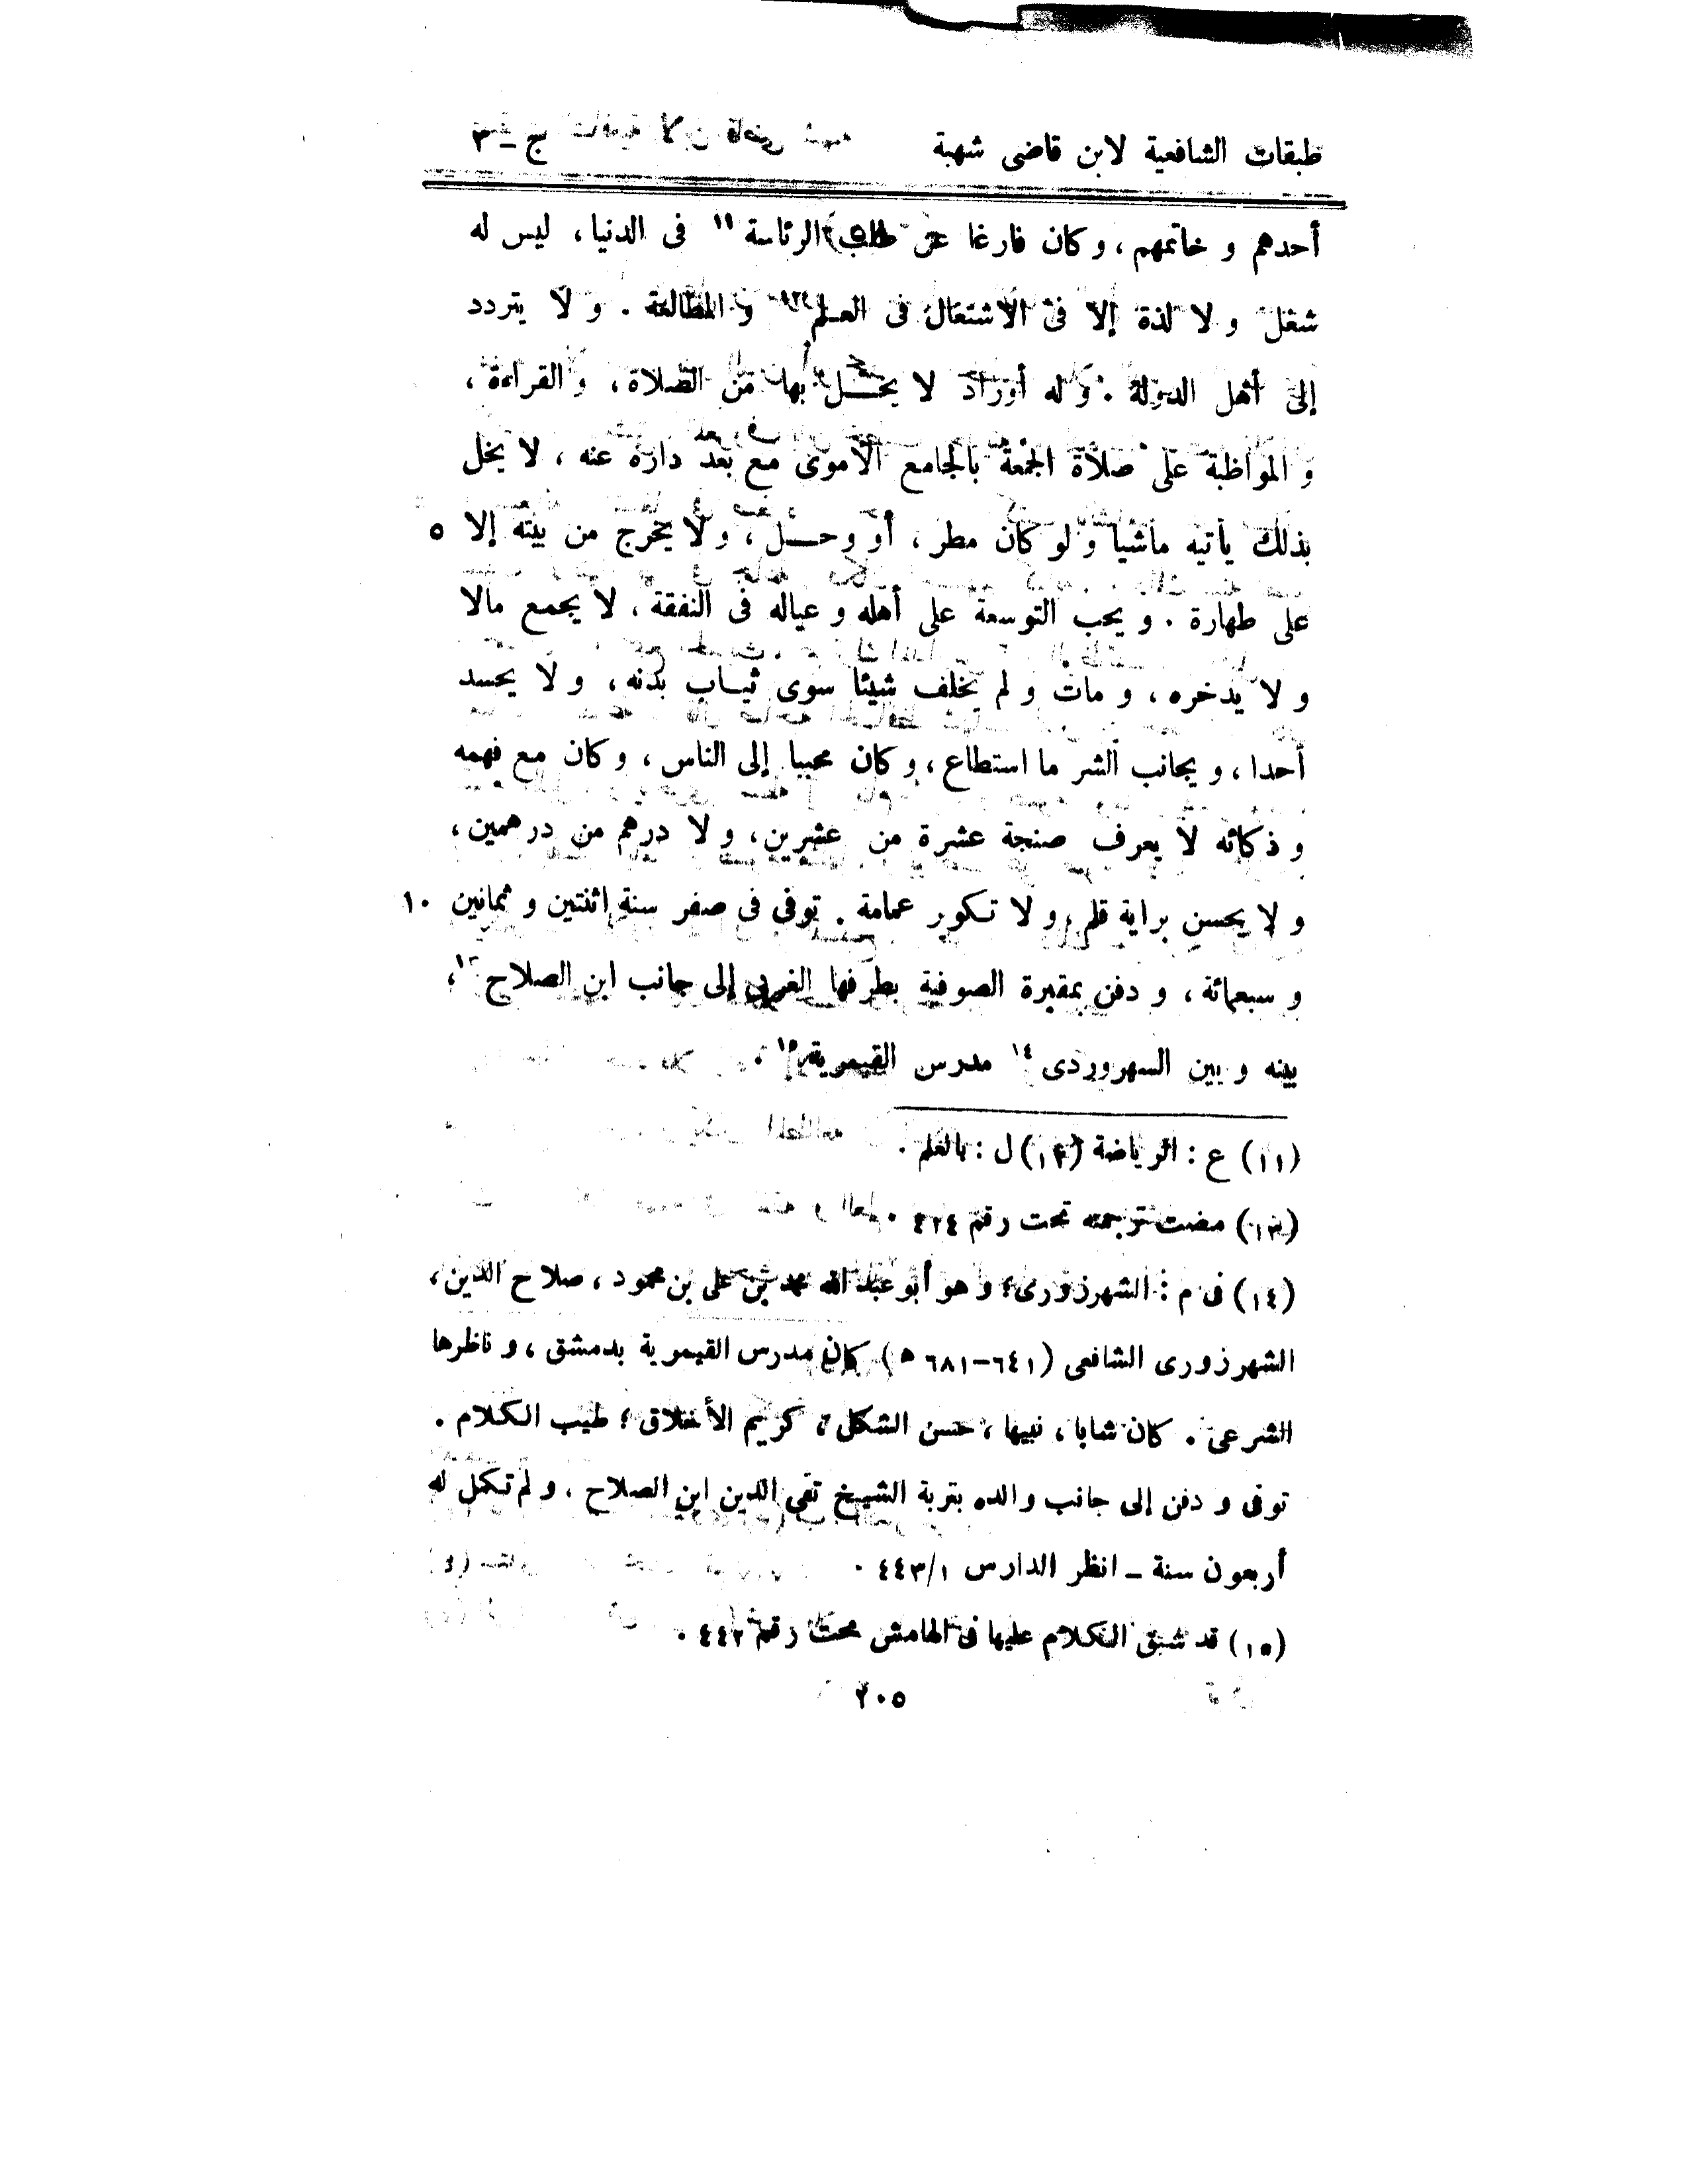 طبقات الشافعية لابن قاضى شهبة ج - ٣
أحدهم و خاتمهم ، و كان فارغا عن طلب الرئاسة ١١ فى الدنيا ، ليس له
شغل و لا لذة إلا فى الاشتغال فى العلم ١٢ و المطالعة . و لا يتردد
إلى أهل الدولة . و له أوراد لا يخل بها من الصلاة ، و القراءة ،
و المواظبة على صلاة الجمعة بالجامع الأموى مع بعد داره عنه ، لا يخل
بذلك يأتيه ماشيا و لو كان مطر ، أو وحل ، و لا يخرج من بيته إلا ٥
على طهارة . و يحب التوسعة على أهله و عياله فى النفقة ، لا يجمع مالا
و لا يدخره ، و مات و لم يخلف شيئا سوى ثياب بدنه ، و لا يحسد
أحدا ، و يجانب الشر ما استطاع ، و كان محببا إلى الناس ، و كان مع فهمه
و ذكائه لا يعرف صنجة عشرة من عشرين ، و لا درهم من درهمين ،
و لا يحسن براية قلم ، و لا تكوير عمامة . توفى فى صفر سنة اثنتين و ثمانين ١٠
و سبعمائة ، و دفن بمقبرة الصوفية بطرفها الغربى إلى جانب ابن الصلاح ١٣ ،
بينه و بين السهروردى ١٤ مدرس القيمرية ١٥ .
(١١) ع : الرياضة (١٢) ل : بالعلم .
(١٣) مضت ترجمته تحت رقم ٤١٤ .
(١٤) فى م : الشهرزورى ؛ و هو أبو عبد الله محمد بن على بن محمود ، صلاح الدين ،
الشهرزورى الشافعى (٦٤١-٦٨١ ه) كان مدرس القيمرية بدمشق ، و ناظرها
الشرعى . كان شابا ، نبيها ، حسن الشكل ، كريم الأخلاق ؛ طيب الكلام .
توفى و دفن إلى جانب والده بتربة الشيخ تقى الدين ابن الصلاح ، و لم تكمل له
أربعون سنة - انظر الدارس ٤٤٣/١ .
(١٥) قد سبق الكلام عليها فى الهامش تحت رقم ٤٤٢ .
٢٠٥